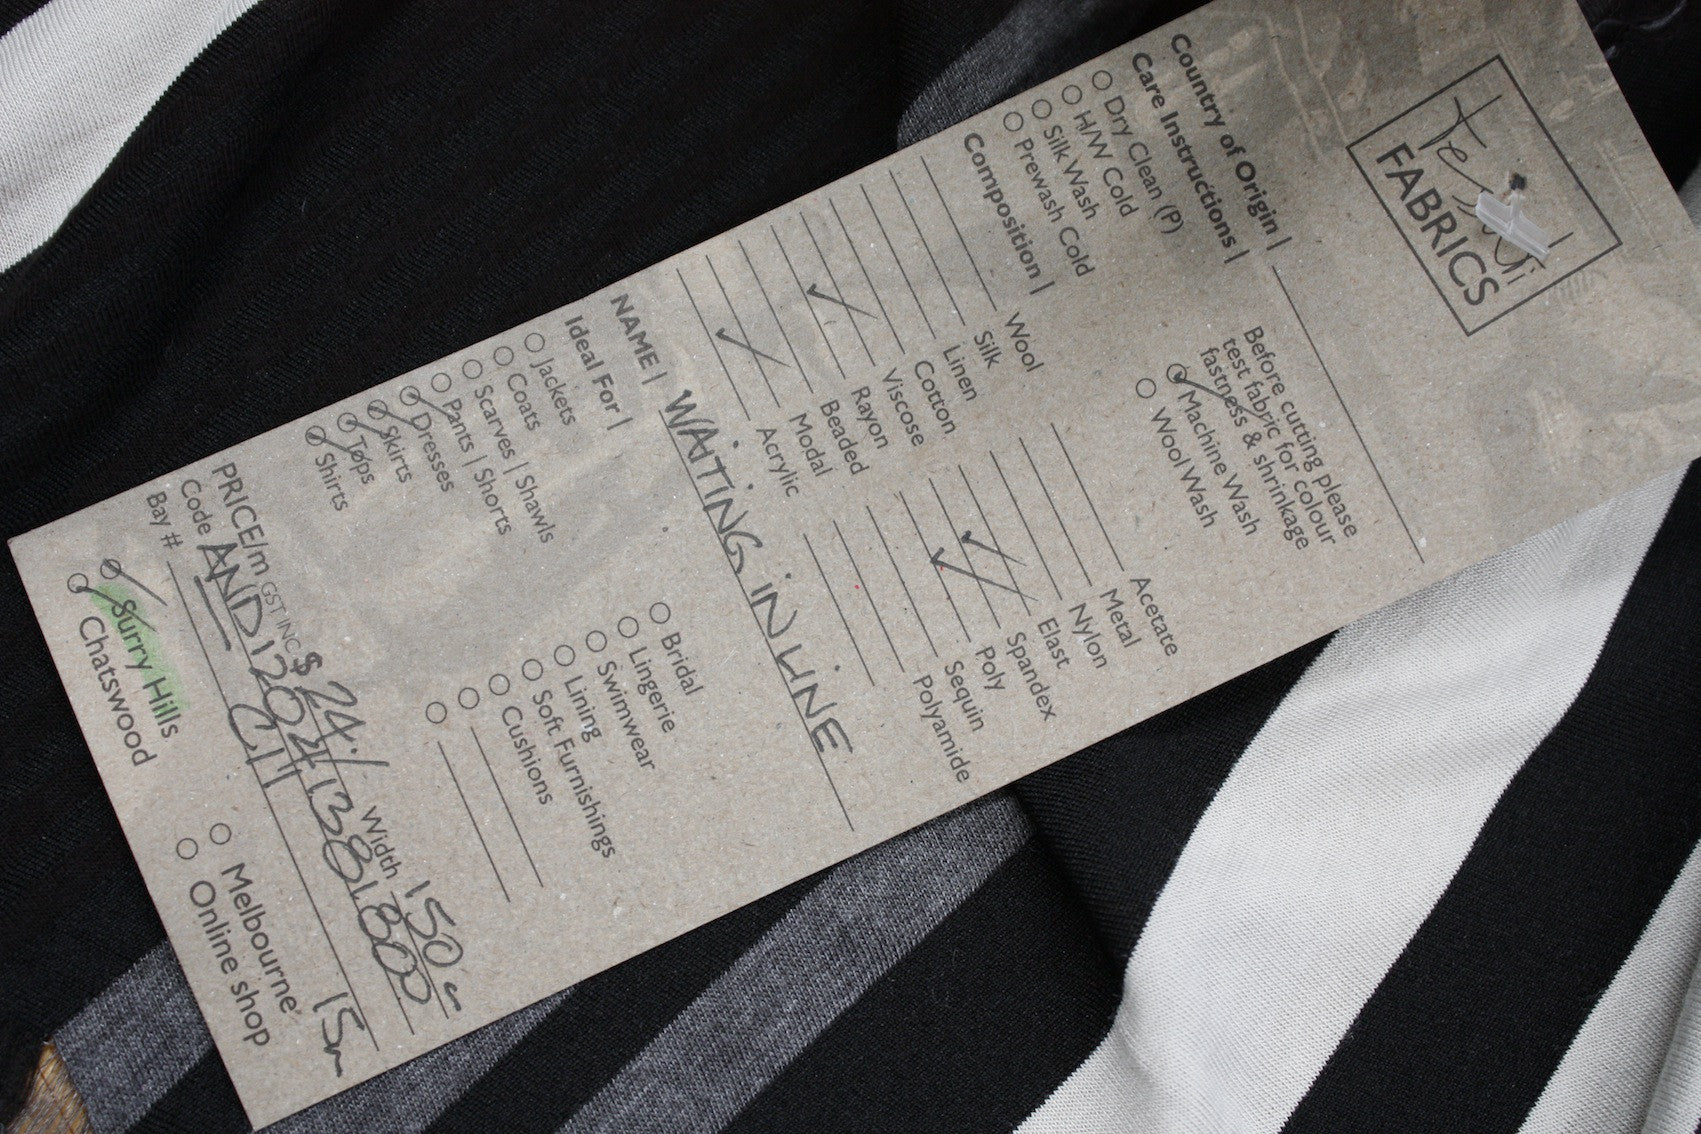 Tessuti
FABRICS
Country of Origin |
Care Instructions |
Dry Clean (P)
H/W Cold
Silk Wash
Prewash Cold
Before cutting please
test fabric for colour
fastness & shrinkage
Machine Wash
Wool Wash
Composition |
Wool
Silk
Linen
Cotton
Viscose
Rayon
Beaded
Modal
Acrylic
Acetate
Metal
Nylon
Elast
Spandex
Poly
Sequin
Polyamide
NAME | WAITING IN LINE
Ideal For |
Jackets
Coats
Scarves | Shawls
Pants | Shorts
Dresses
Skirts
Tops
Shirts
Bridal
Lingerie
Swimwear
Lining
Soft Furnishings
Cushions
PRICE/m GST INC $24./ Width 150
Code AND
Bay # C11 15m
Surry Hills
Chatswood
Melbourne
Online shop